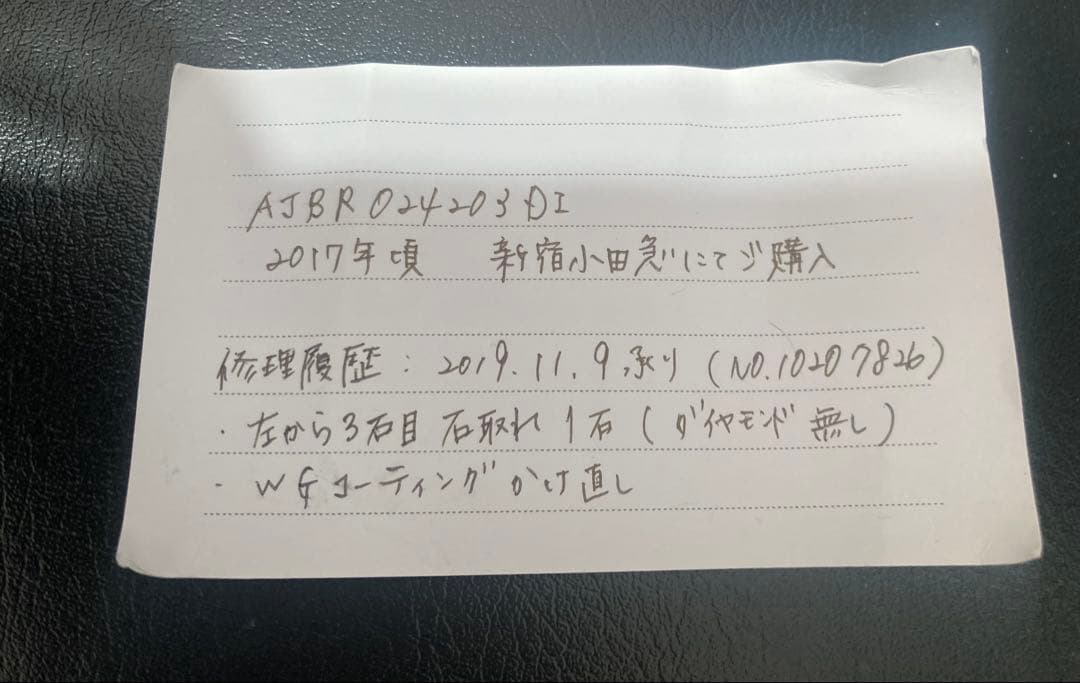 AJBR024203DI
2017年頃 新宿小田急にてご購入
修理履歴：2019.11.9承り（NO.10207826）
・左から3石目 石取れ1石（ダイヤモンド無し）
・WGコーティングかけ直し